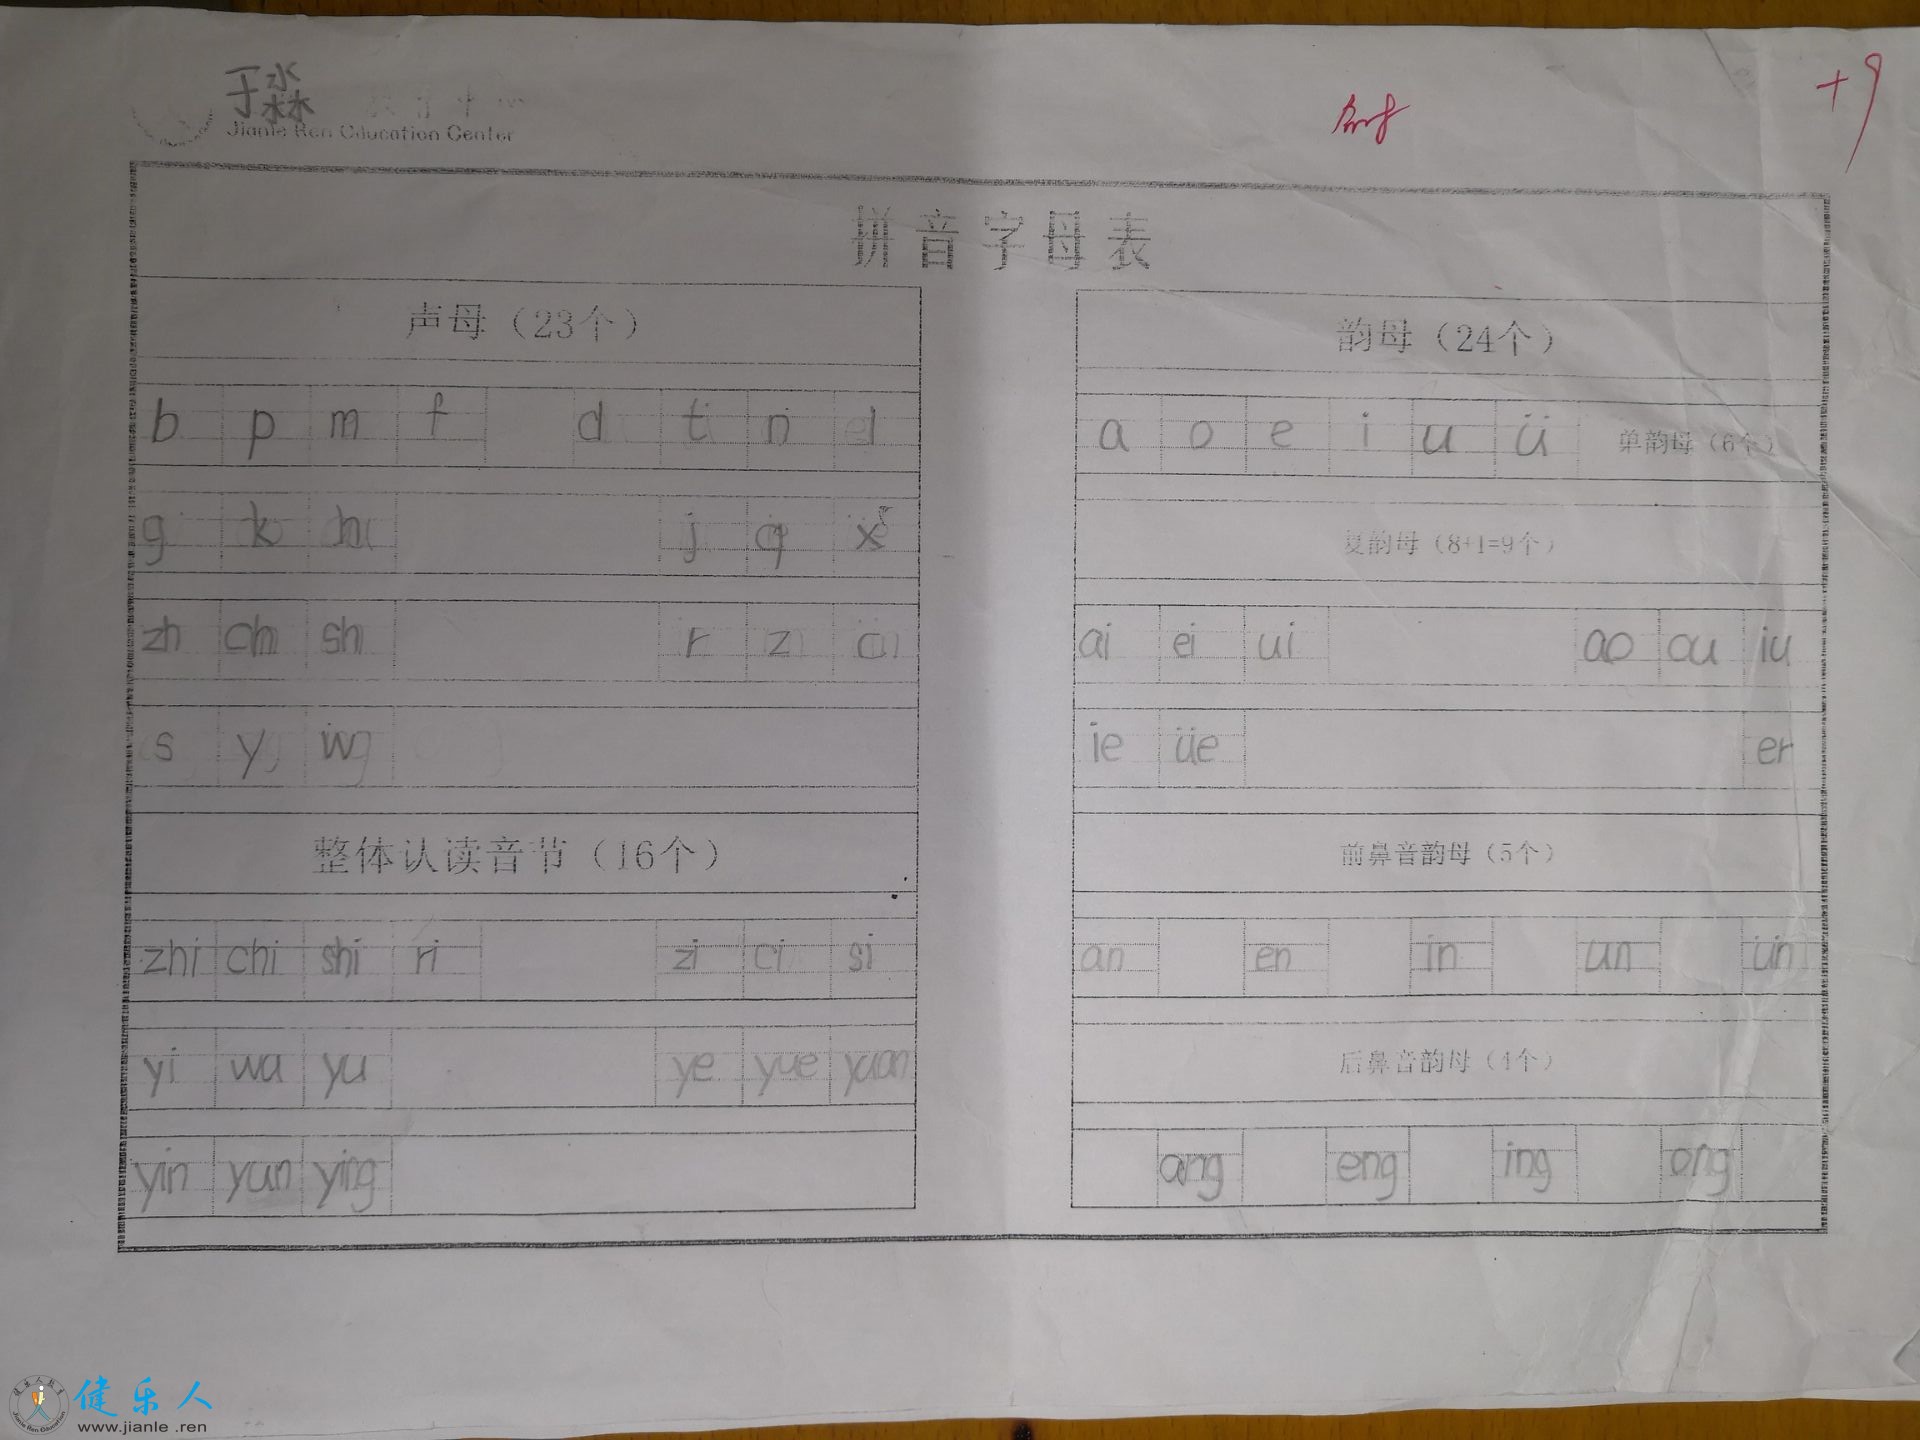 于淼
Jianle Ren Education Center
+9
拼音字母表
声母（23个）
b p m f d t n l
g k h j q x
zh ch sh r z c
s y w
整体认读音节（16个）
zhi chi shi ri zi ci si
yi wu yu ye yue yuan
yin yun ying
韵母（24个）
a o e i u ü 单韵母（6个）
复韵母（8+1=9个）
ai ei ui ao ou iu
ie üe er
前鼻音韵母（5个）
an en in un ün
后鼻音韵母（4个）
ang eng ing ong
健乐人
www.jianle.ren